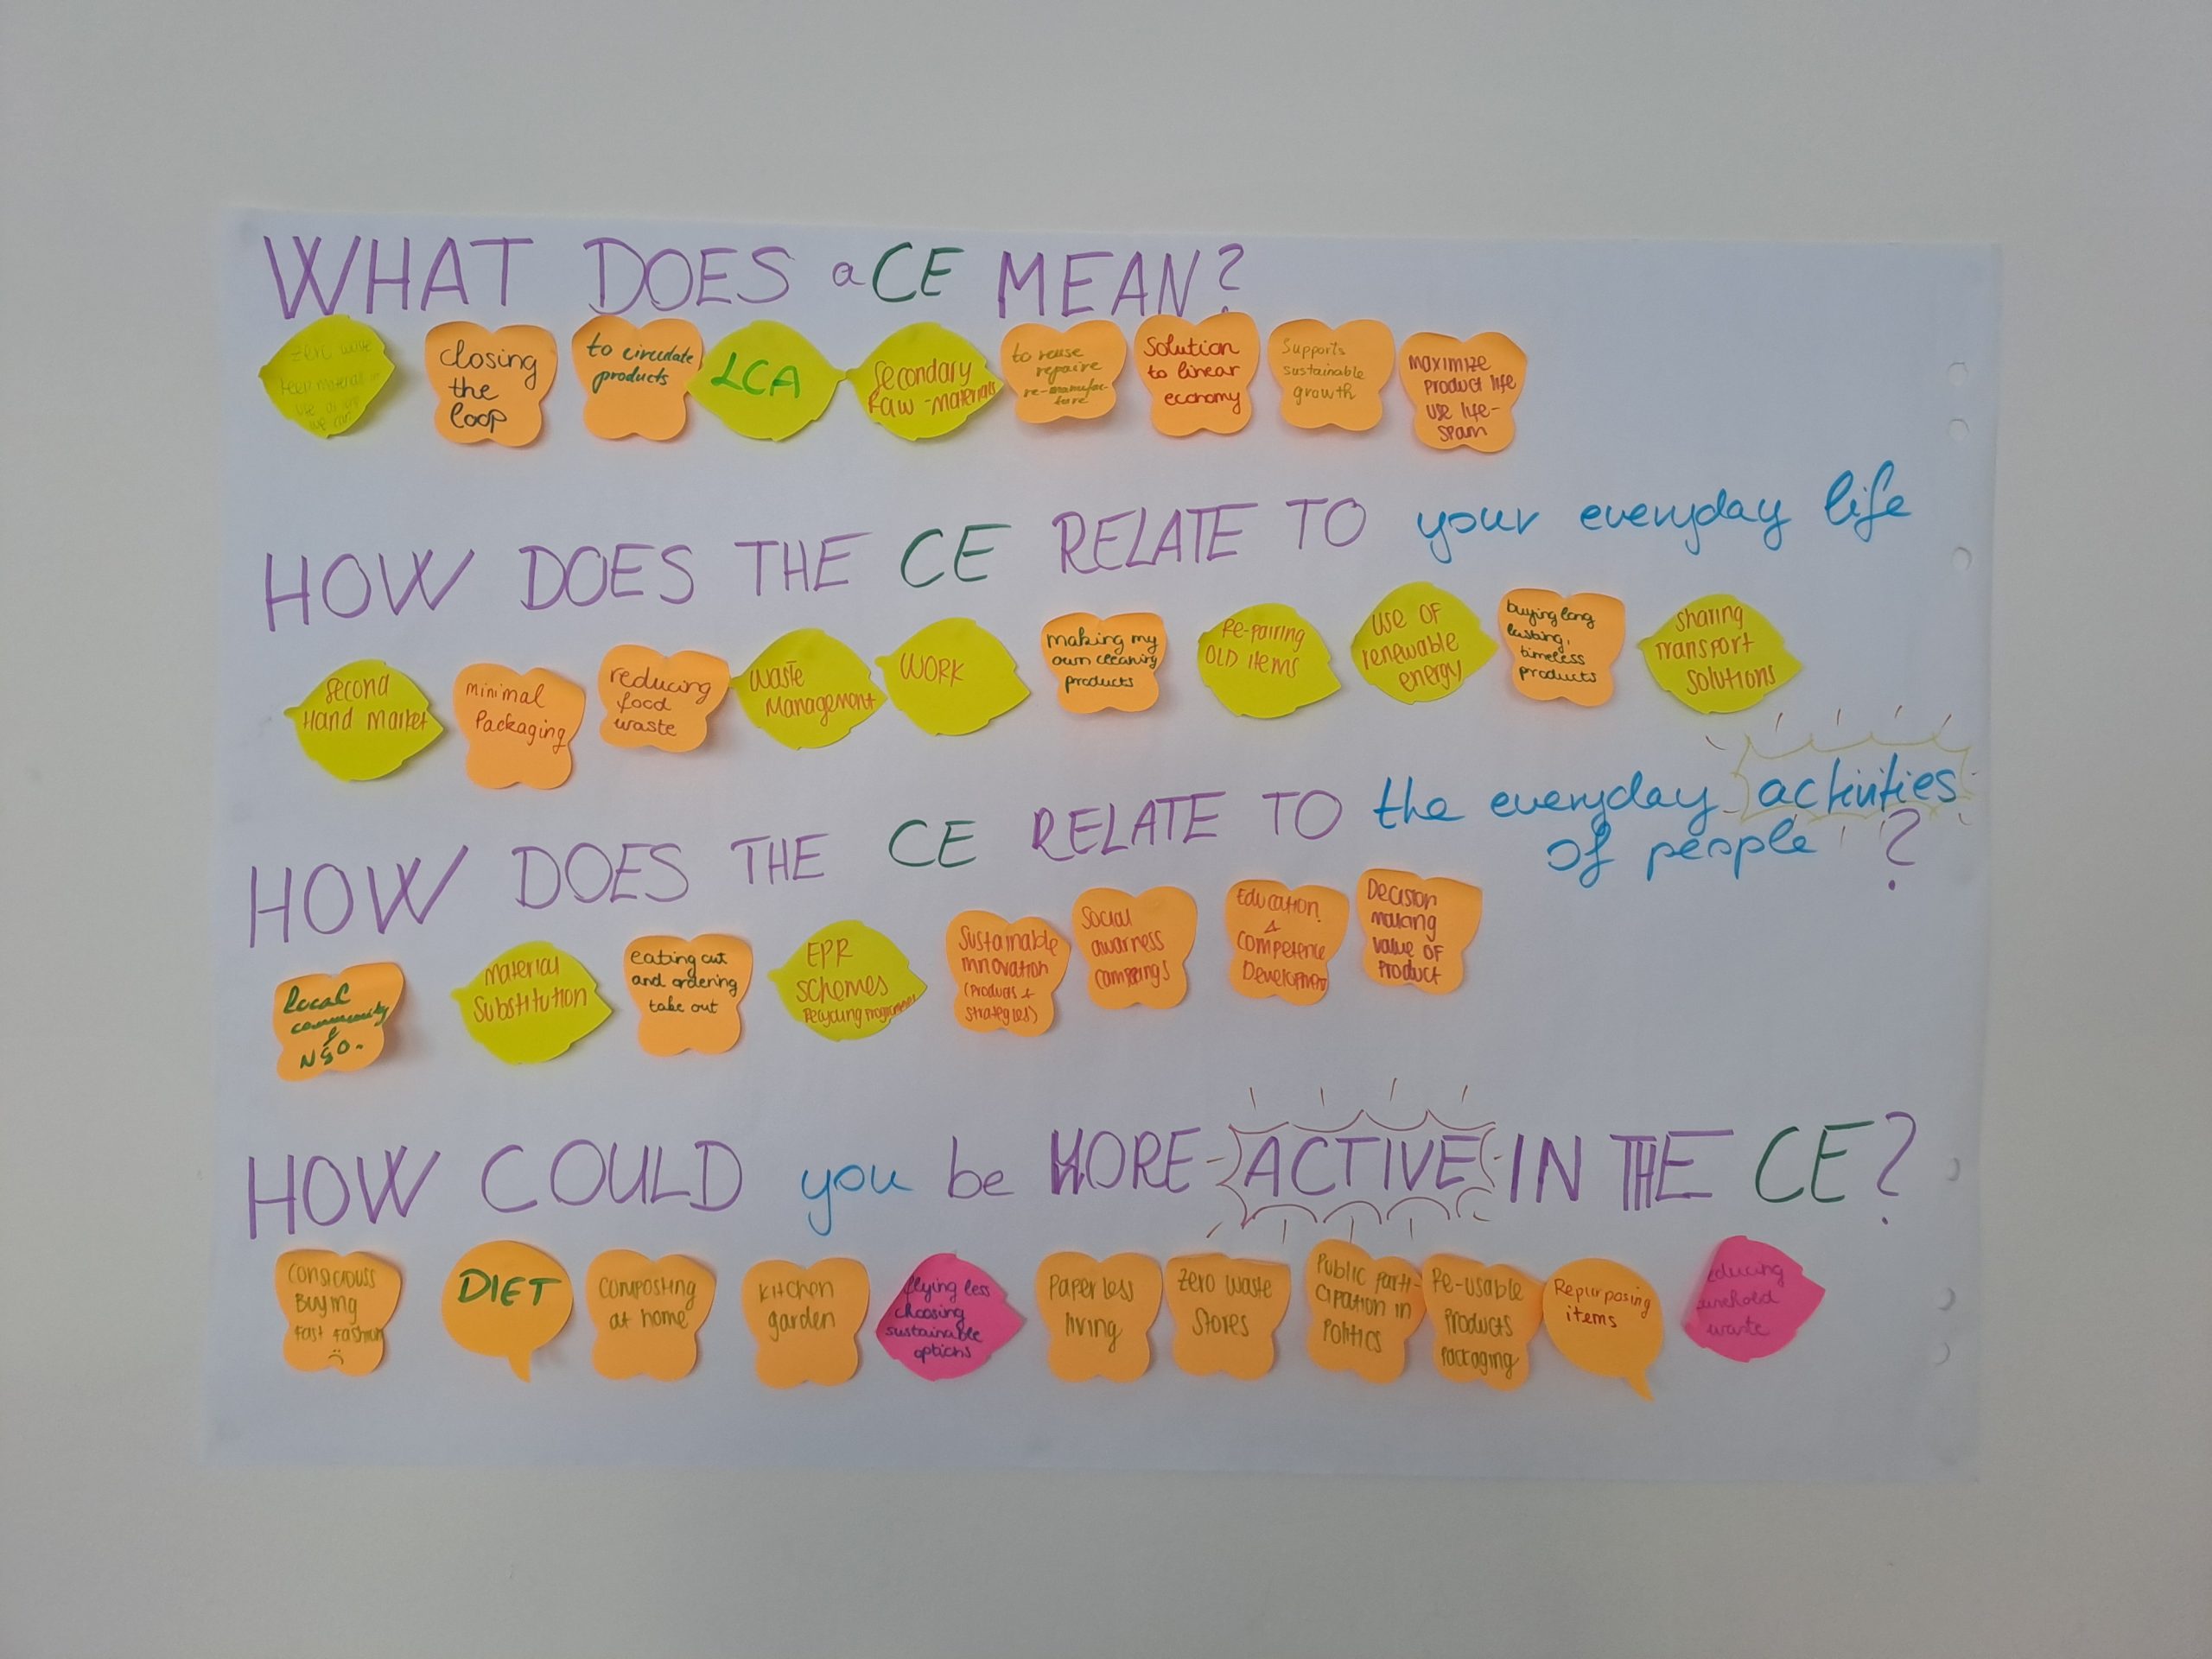 WHAT DOES a CE MEAN?
zero waste
keep materials in
use as long
we can
closing
the
loop
to circulate
products
LCA
Secondary
Raw-materials
to reuse
repaire
re-manufac-
ture
Solution
to linear
economy
Supports
sustainable
growth
maximize
product life
use life-
spam
HOW DOES THE CE RELATE TO your everyday life
Second
Hand Market
minimal
Packaging
reducing
food
waste
Waste
Management
WORK
making my
own cleaning
products
Re-pairing
OLD items
USE OF
renewable
energy
buying long
lasting,
timeless
products
sharing
Transport
solutions
HOW DOES THE CE RELATE TO the everyday activities
of people ?
Local
community
&
NGO.
Material
Substitution
eating out
and ordering
take out
EPR
SCHEMES
Recycling programmes
Sustainable
Innovation
(Products &
strategies)
Social
awarness
campaings
Education
&
Competence
Development
Decision
making
value OF
Product
HOW COULD you be MORE ACTIVE IN THE CE?
Consciouss
Buying
Fast Fashion
DIET
Composting
at home
Kitchen
garden
flying less
choosing
sustainable
options
Paper less
living
Zero waste
Stores
Public parti-
cipation in
Politics
Re-usable
Products
Packaging
Repurposing
items
educing
usehold
waste